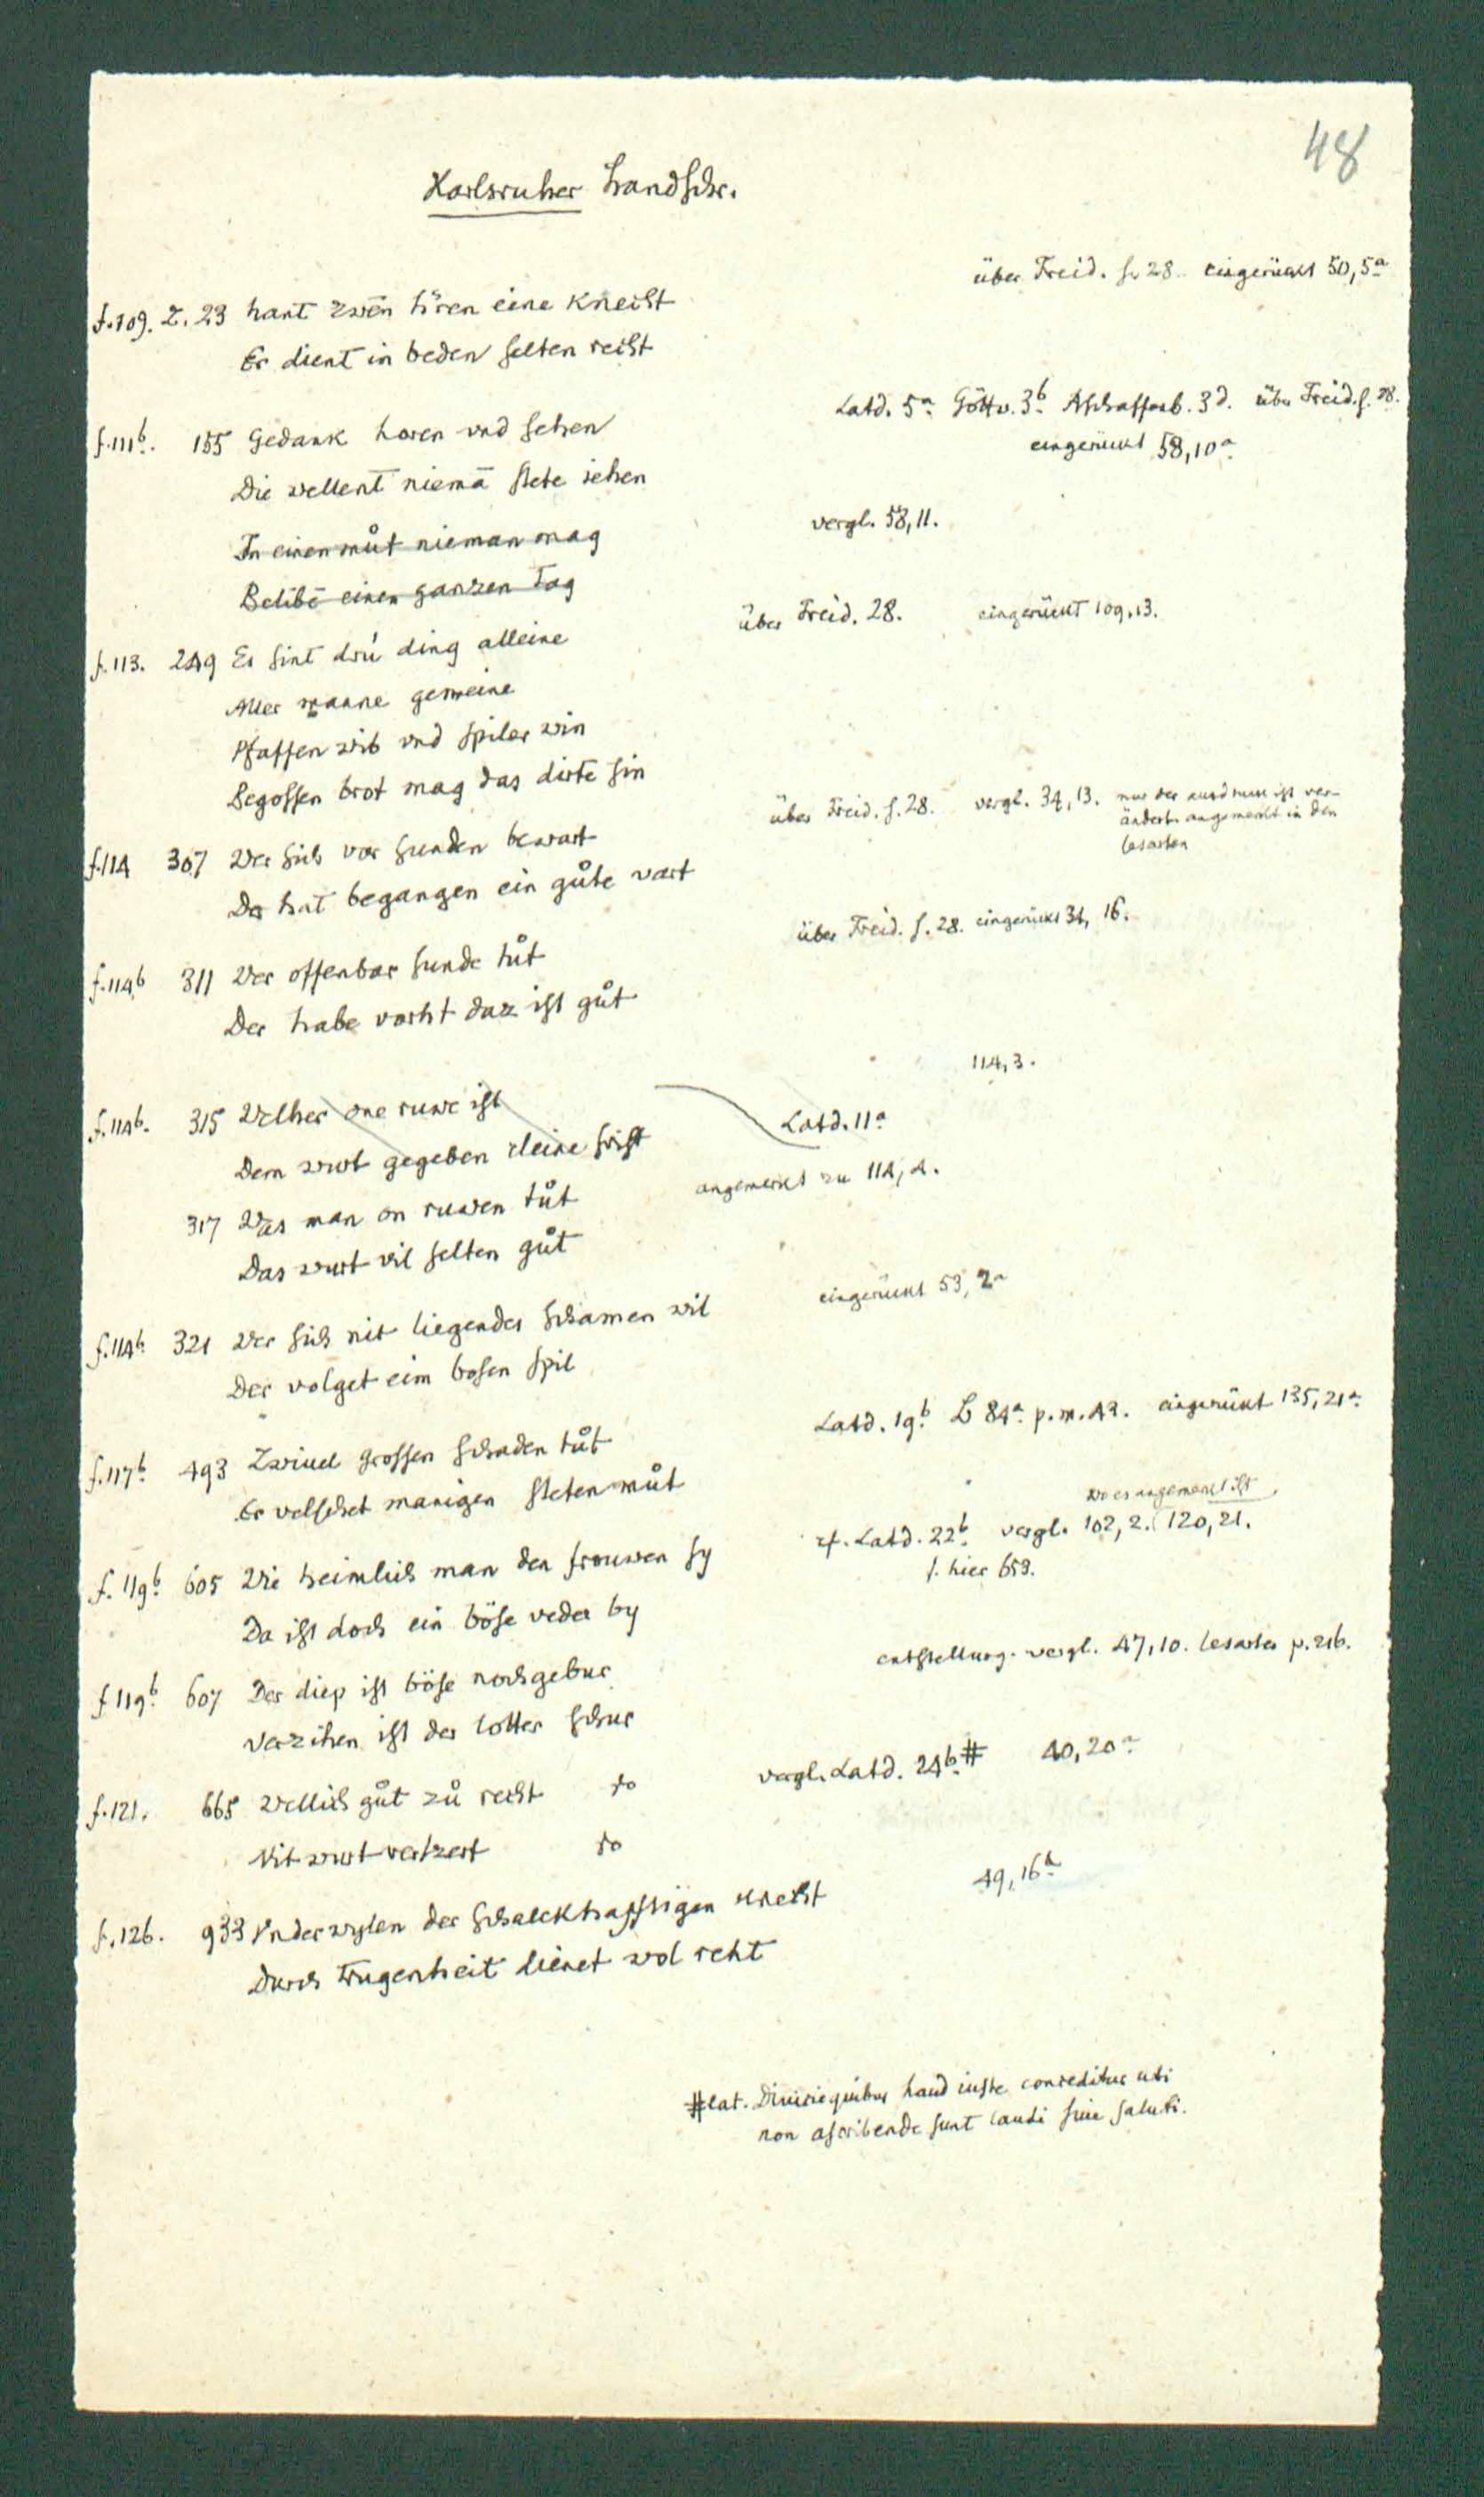 48
Karlsruher handschr.
über Freid. s. 28. eingerückt 50,5a
f. 109. Z. 23 hant zwēn hʼren eine Knecht
Er dient in beden selten recht
Latd. 5a. Göttw. 3b. Aschaffenb. 3d. über Freid. s. 28.
eingerückt 58,10a.
f. 111b. 155 Gedank horen vnd sehen
Die wellent niemā stete jehen
vergl. 58,11.
In einen můt nieman mag
Belibē einen ganzen Tag
über Freid. 28. eingerückt 109,13.
f. 113. 249 Es sint drú ding alleine
Aller manne gemeine
Pfaffen wib vnd spiler win
Begossen brot mag das dirte sin
über Freid. s. 28. vergl. 34,13. nur der ausdruck ist ver-
ändert. angemerkt in den
lesarten
f. 114 307 Wer sich vor sunden bewart
Der hat begangen ein gůte vart
über Freid. s. 28. eingerückt 34, 16.
f. 114b 311 Wer offenbar sunde tůt
Der habe vorht daz ist gůt
114,3.
f. 114b. 315 Welher one ruwe ist
Latd. 11a
Dem wurt gegeben cleine frist
angemerkt zu 114,4.
317 Was man on ruwen tůt
Das wurt vil selten gůt
eingerückt 53,2a
f. 114b. 321 Wer sich nit liegendes schamen wil
Der volget eim bosen spil
Latd. 19b. B 84a. p. m. 42. eingerückt 135,21a.
f. 117b. 493 Zwiuel grossen schaden tůt
Er velschet manigen steten můt
wo es angemerkt ist
cf. Latd. 22b. vergl. 102,2. 120,21.
s. hier 653.
f. 119b. 605 Wie heimlich man den frouwen sy
Da ist doch ein böse veder by
entstellung. vergl. 47,10. lesarten p. 216.
f 119b. 607 Der diep ist böse nochgebur
Verzihen ist der lotter schur
vergl. Latd. 24b. # 40,20a.
f. 121. 665 Wellich gůt zů recht so
Nit wurt vertzert so
49,16a.
f. 126. 933 Vnderwylen der schalckhafftigen knecht
Durch Trugenheit dienet wol reht
# lat. Diuicie quibus haud iuste conceditur uti
non ascribende sunt laudi siue saluti.